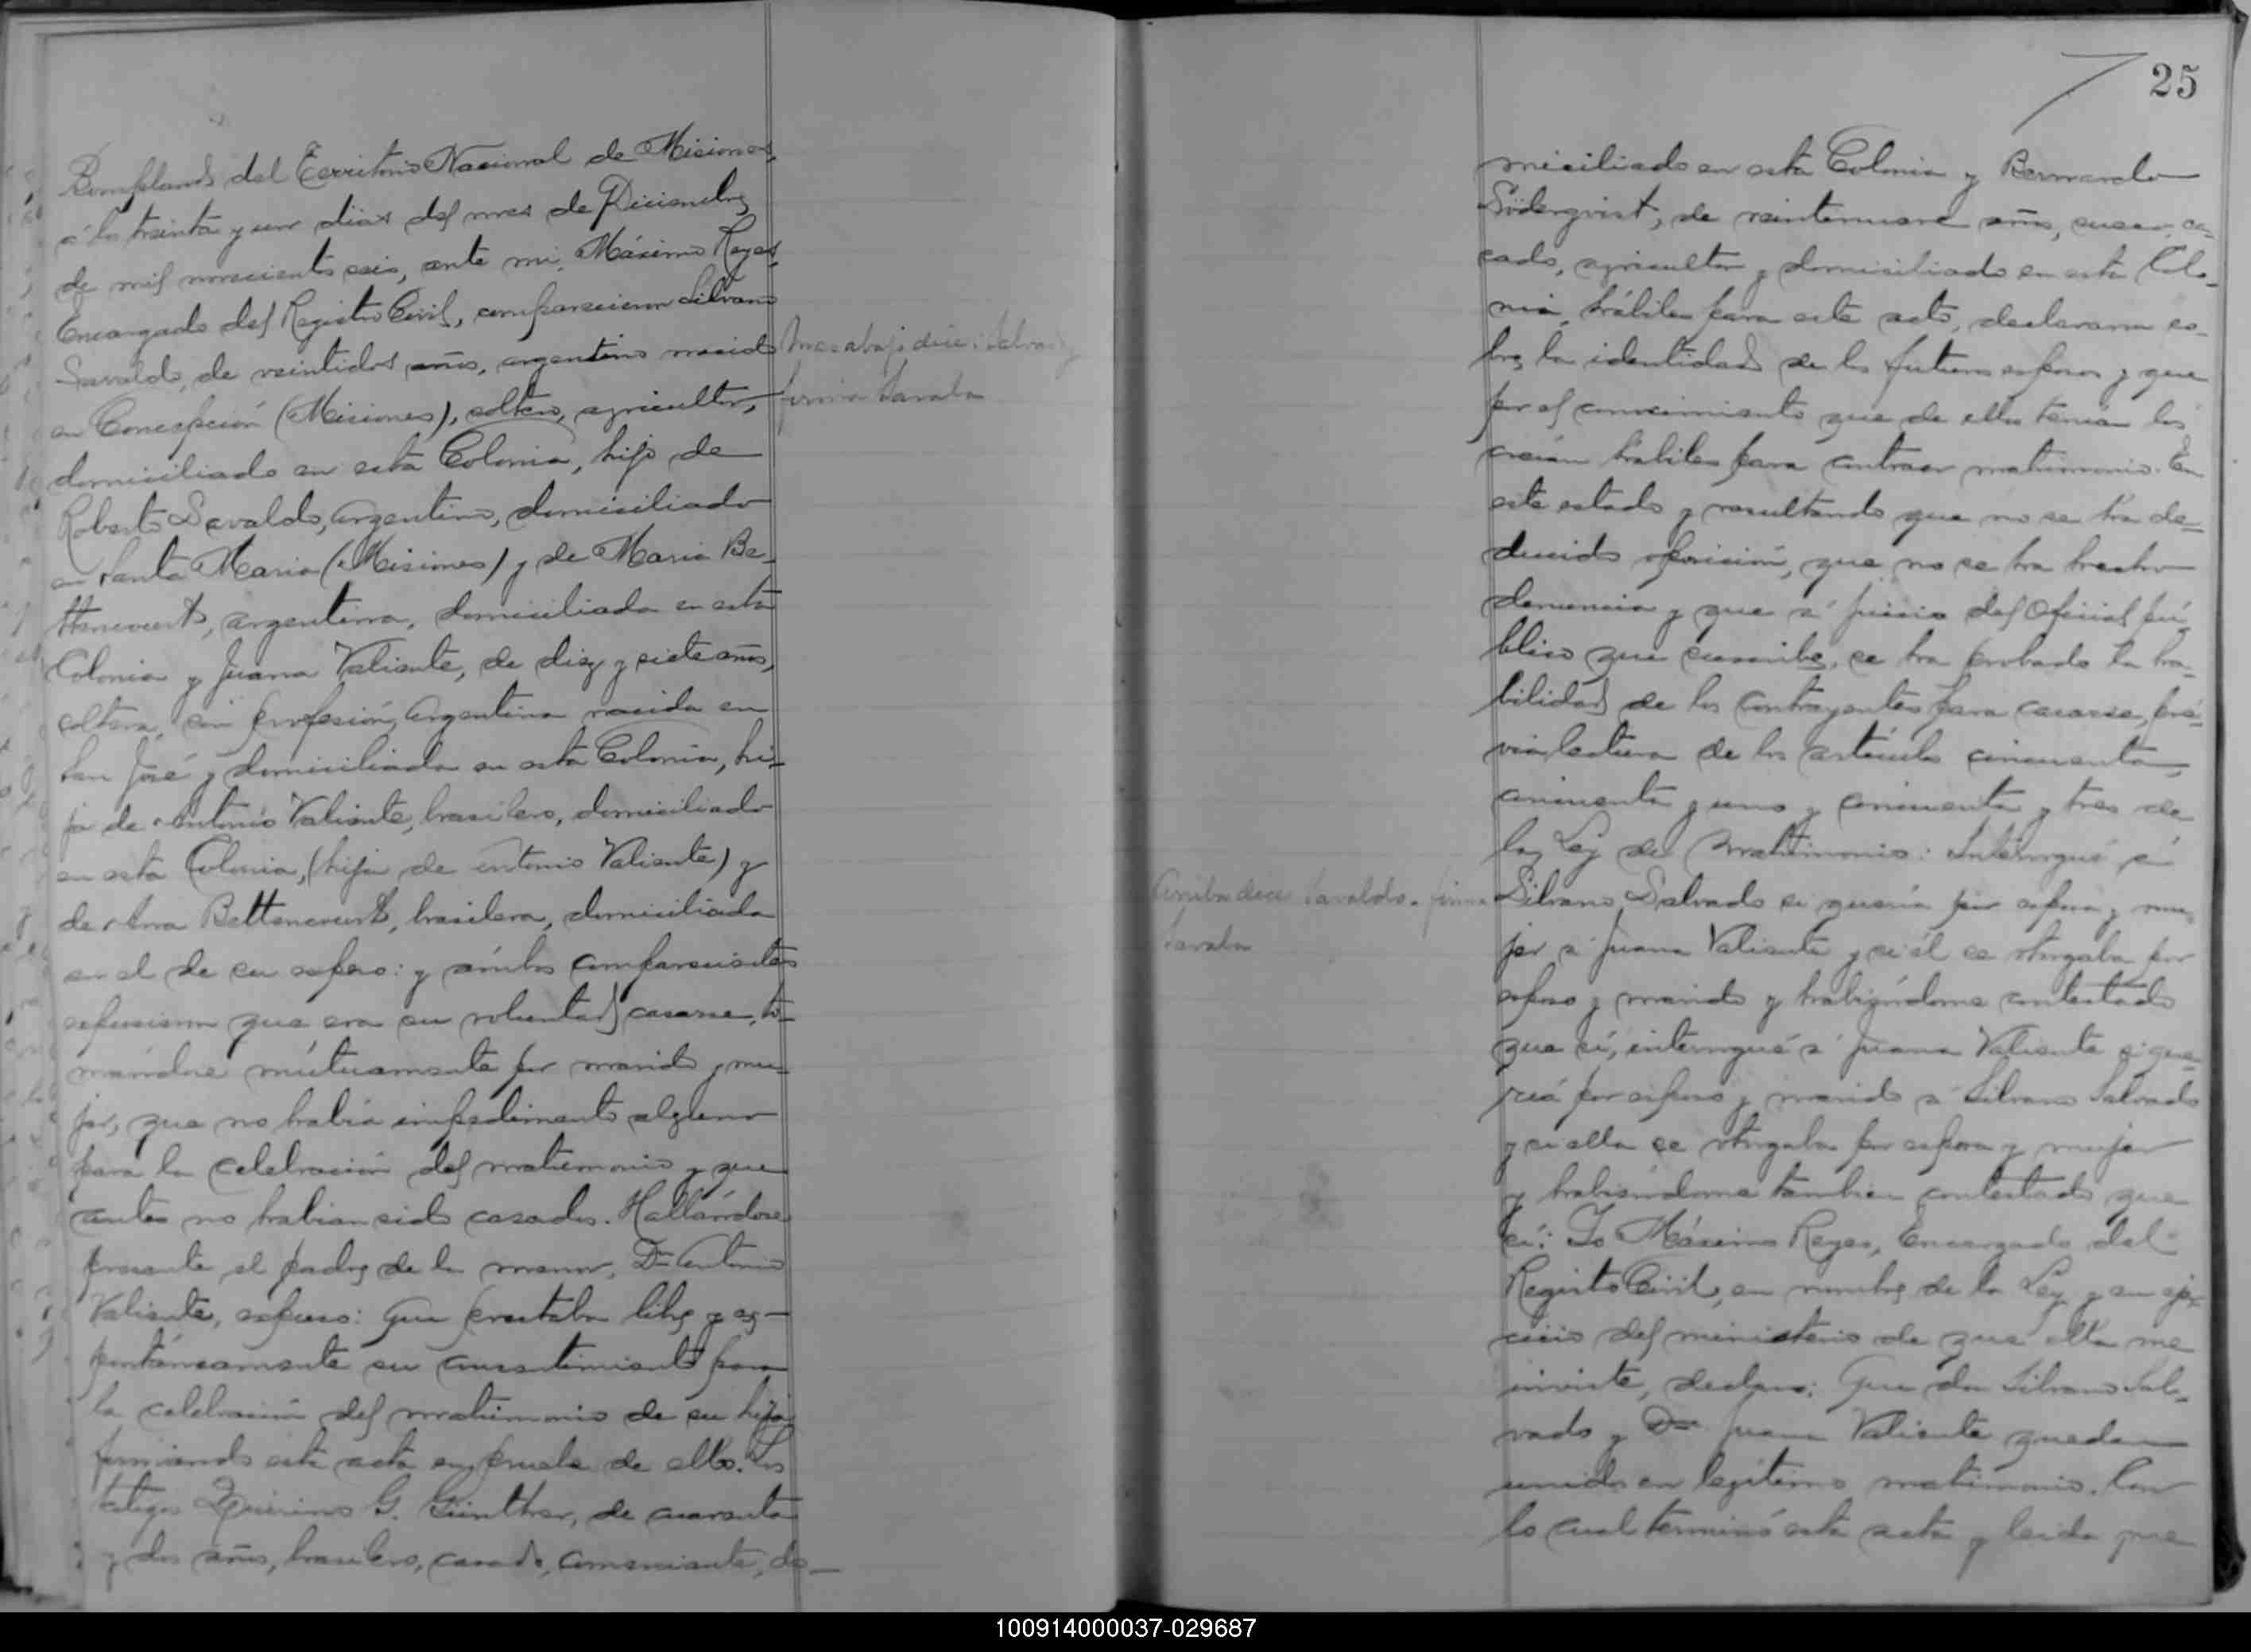 Bompland del Territorio Nacional de Misiones,
á los treinta y un dias del mes de Diciembre
de mil novecientos seis, ante mi, Máximo Reyes,
Encargado del Registro Civil, comparecieron Silvano
Savaldo, de veintidos años, argentino nacido
en Concepción (Misiones), soltero, agricultor,
domiciliado en esta Colonia, hijo de
Roberto Savaldo, argentino, domiciliado
en Santa Maria (Misiones) y de Maria Be-
ttencourt, argentina, domiciliada en esta
Colonia y Juana Valiente, de diez y siete años,
soltera, sin profesión, argentina nacida en
San José y domiciliada en esta Colonia, hi-
ja de Antonio Valiente, brasilero, domiciliado
en esta Colonia, (hija de Antonio Valiente) y
de Ana Bettencourt, brasilera, domiciliada
en el de su esposo: y ámbos comparecientes
espusieron que era su voluntad casarse, to-
mándose mútuamente por marido y mu-
jer, que no habia impedimento alguno
para la celebración del matrimonio y que
antes no habian sido casados. Hallándose
presente el padre de la menor, Dn Antonio
Valiente, espuso: Que prestaba libre y es-
pontáneamente su consentimiento para
la celebración del matrimonio de su hija
firmando esta acta en prueba de ello. Los
testigos Quirino G. Günther, de cuarenta
y dos años, brasilero, casado, comerciante, do-
Mas abajo dice: Salvado y
firma Savala
25
miciliado en esta Colonia y Bernardo
Söderqvist, de veintenueve años, sueco, ca-
sado, agricultor y domiciliado en esta Colo-
nia, hábiles para este acto, declararon so-
bre la identidad de los futuros esposos y que
por el conocimiento que de ellos tenian los
creian hábiles para contraer matrimonio. En
este estado y resultando que no se ha de-
ducido oposición, que no se ha hecho
denuncia y que á juicio del Oficial pú-
blico que suscribe, se ha probado la ha-
bilidad de los contrayentes para casarse, pré-
via lectura de los artículos cincuenta,
cincuenta y uno y cincuenta y tres de
la Ley de Matrimonio: Interrogué á
Silvano Salvado si queria por esposa y mu-
jer á Juana Valiente y si él se otorgaba por
esposo y marido y habiéndome contestado
que sí, interrogué á Juana Valiente si que-
ria por esposo y marido á Silvano Salvado
y si ella se otorgaba por esposa y mujer
y habiéndome tambien contestado que
sí: Yo Máximo Reyes, Encargado del
Registro Civil, en nombre de la Ley y en eje-
cicio del ministerio de que ella me
inviste, declaro: Que don Silvano Sal-
vado y Da Juana Valiente quedan
unidos en legítimo matrimonio. Con
lo cual terminó esta acta y leida que
Arriba dice Savaldo. firma
Savala
100914000037-029687